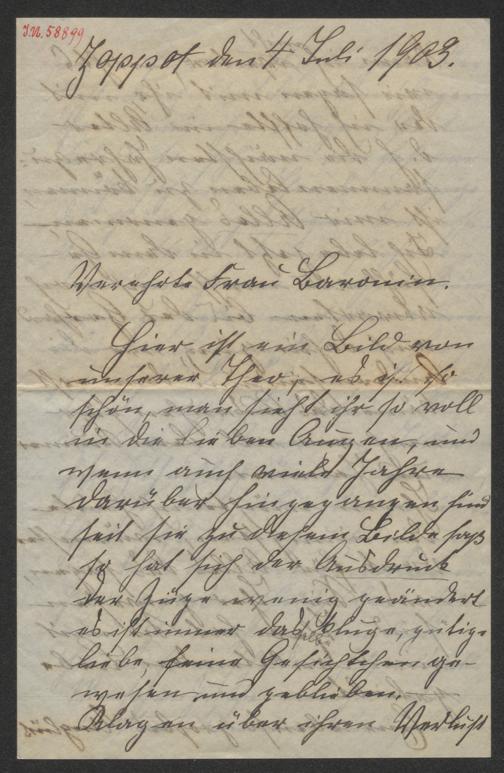 J.N. 58899
Zoppot den 4 Juli 1903.
Verehrte Frau Baronin.
Hier ist ein Bild von
unserer Theo, es ist so
schön, man sieht ihr so voll
in die lieben Augen, und
wenn auch viele Jahre
darüber hingegangen sind
seit sie zu diesem Bilde saß
so hat sich der Ausdruck
der Züge wenig geändert
es ist immer das kluge, gütige
liebe, feine Gesichtchen ge-
wesen und geblieben.
Klagen über ihren Verlust